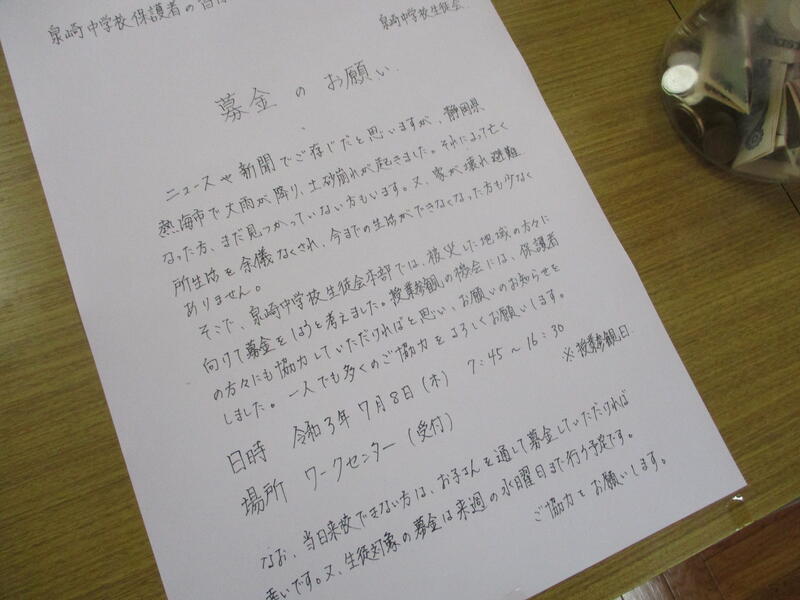 泉崎中学校保護者の皆様
泉崎中学校生徒会
募金のお願い
ニュースや新聞でご存じだと思いますが、静岡県
熱海市で大雨が降り、土砂崩れが起きました。それによって亡く
なった方、まだ見つかっていない方もいます。又、家が壊れ避難
所生活を余儀なくされ、今までの生活ができなくなった方も少なく
ありません。
そこで、泉崎中学校生徒会本部では、被災した地域の方々に
向けて募金をしようと考えました。授業参観の機会には、保護者
の方々にも協力していただければと思い、お願いのお知らせを
しました。一人でも多くのご協力をよろしくお願いします。
日時 令和3年7月8日(木) 7:45～16:30
※授業参観日
場所 ワークセンター(受付)
なお、当日来校できない方は、お子さんを通して募金していただければ
幸いです。又、生徒対象の募金は来週の水曜日まで行う予定です。
ご協力をお願いします。